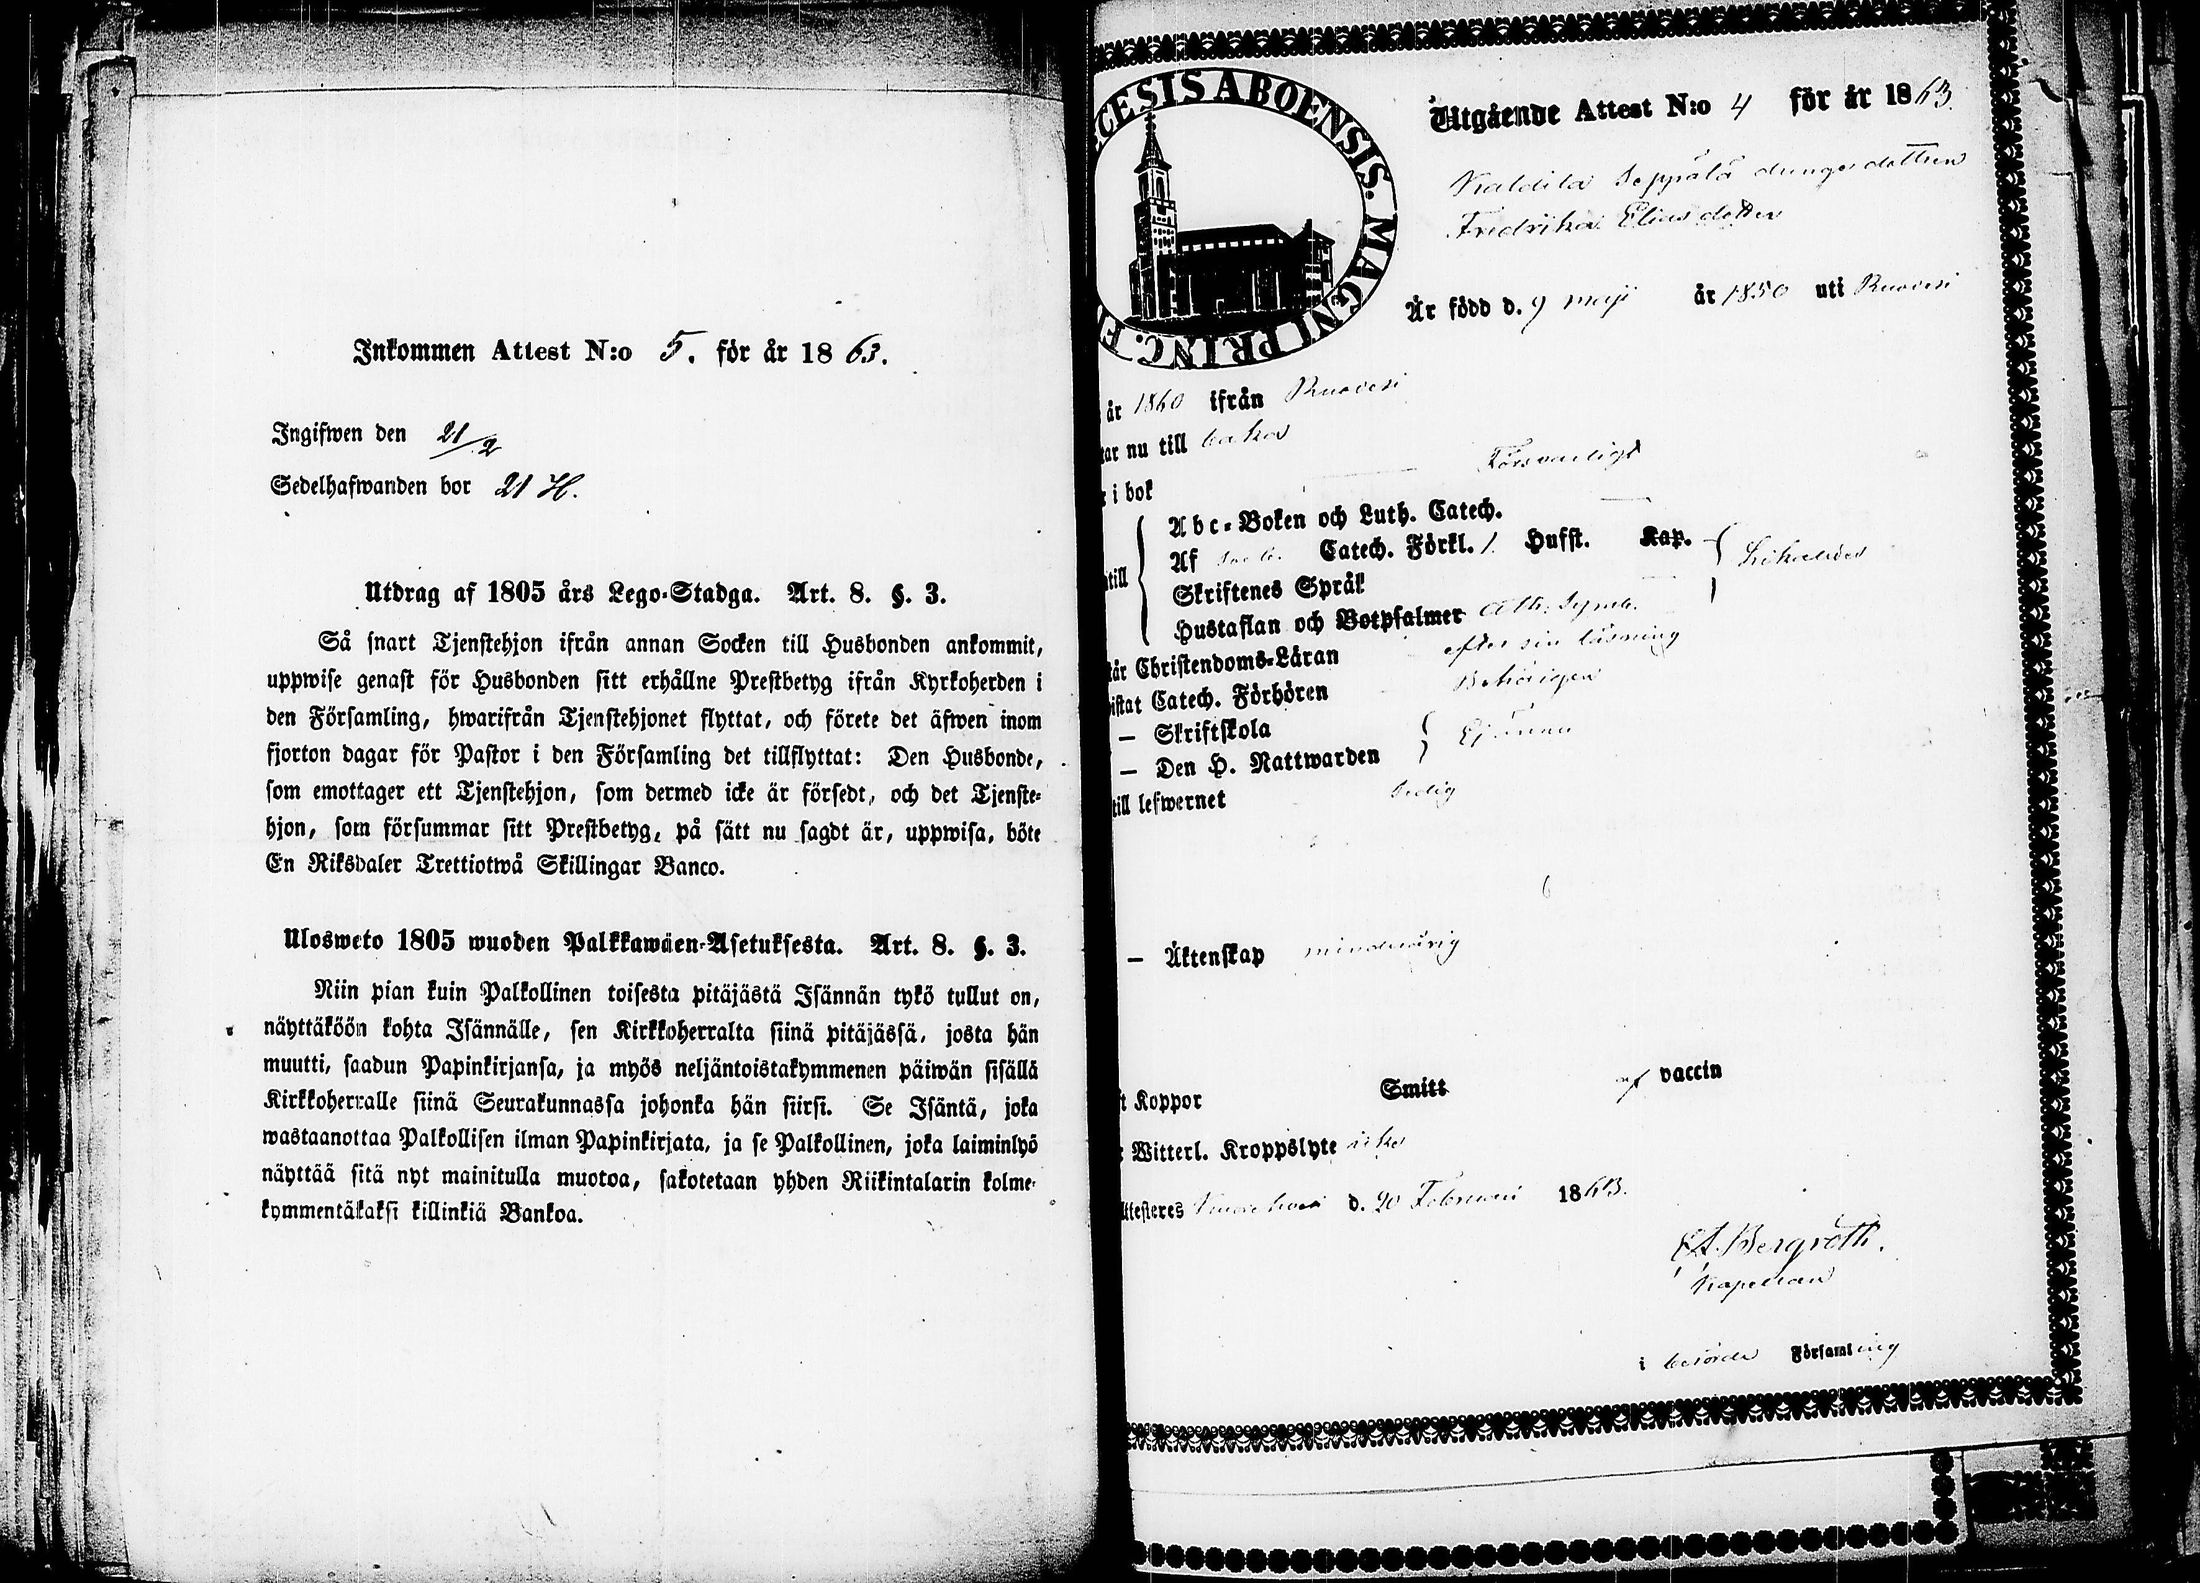 Inkommen Attest N:o 5. för år 1863.
Ingifwen den 21/2
Sedelhafwanden bor 21 H.
Utdrag af 1805 års Lego-Stadga. Art. 8. §. 3.
Så snart Tjenstehjon ifrån annan Socken till Husbonden ankommit,
uppwise genast för Husbonden sitt erhållne Prestbetyg ifrån Kyrkoherden i
den Församling, hwarifrån Tjenstehjonet flyttat, och förete det äfwen inom
fjorton dagar för Pastor i den Församling det tillflyttat: Den Husbonde,
som emottager ett Tjenstehjon, som dermed icke är försedt, och det Tjenste-
hjon, som försummar sitt Prestbetyg, på sätt nu sagdt är, uppwisa, böte
En Riksdaler Trettiotwå Skillingar Banco.
Ulosweto 1805 wuoden Palkkawäen-Asetuksesta. Art. 8. §. 3.
Niin pian kuin Palkollinen toisesta pitäjästä Isännän tykö tullut on,
näyttäköön kohta Isännälle, sen Kirkkoherralta siinä pitäjässä, josta hän
muutti, saadun Papinkirjansa, ja myös neljäntoistakymmenen päiwän sisällä
Kirkkoherralle siinä Seurakunnassa johonka hän siirsi. Se Isäntä, joka
wastaanottaa Palkollisen ilman Papinkirjata, ja se Palkollinen, joka laiminlyö
näyttää sitä nyt mainitulla muotoa, sakotetaan yhden Riikintalarin kolme-
kymmentäkaksi killinkiä Bankoa.
CESIS ABOENSIS. MAGNI PRINC. F
Utgående Attest N:o 4 för år 1863.
Seppälä drängsdottren
Fredrika Eliasdotter
Är född d. 9 maji år 1850 uti Ruovesi
år 1860 ifrån Ruovesi
tar nu till baka
i bok Försvarligt
Abc-Boken och Luth. Catech.
Af Catech. Förkl. 1. Hufst. Kap.
till Skriftenes Språk
Hustaflan och Botpsalmer Ath: Symb.
tår Christendoms-Läran efter sin läsning
istat Catech. Förhören Behörigen
— Skriftskola
— Den H. Nattwarden Ej ännu
till lefwernet Sedig
— Äktenskap minderårig
t Koppor Smitt af vaccin
Witterl. Kroppslyte icke
ttesteres d. 20 Februari 1863.
Bergroth.
Kapellan
i berörde Församling